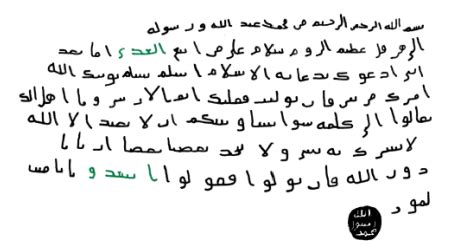 بسم الله الرحمن الرحيم من محمد عبد الله ورسوله
الى هرقل عظيم الروم سلام على من اتبع الهدى اما بعد
اني ادعوك بدعاية الاسلام اسلم تسلم يوتك الله
اجرك مرتين فان توليت فعليك اثم الاريسين ويا اهل الك
تعالوا الى كلمة سوا بيننا وبينكم ان لا نعبد الا الله
لا نشرك به شي ولا يتخذ بعضنا بعضا اربابا
دون الله فان تولوا فقولوا اشهدو بانا مس
لمون
الله
رسول
محمد